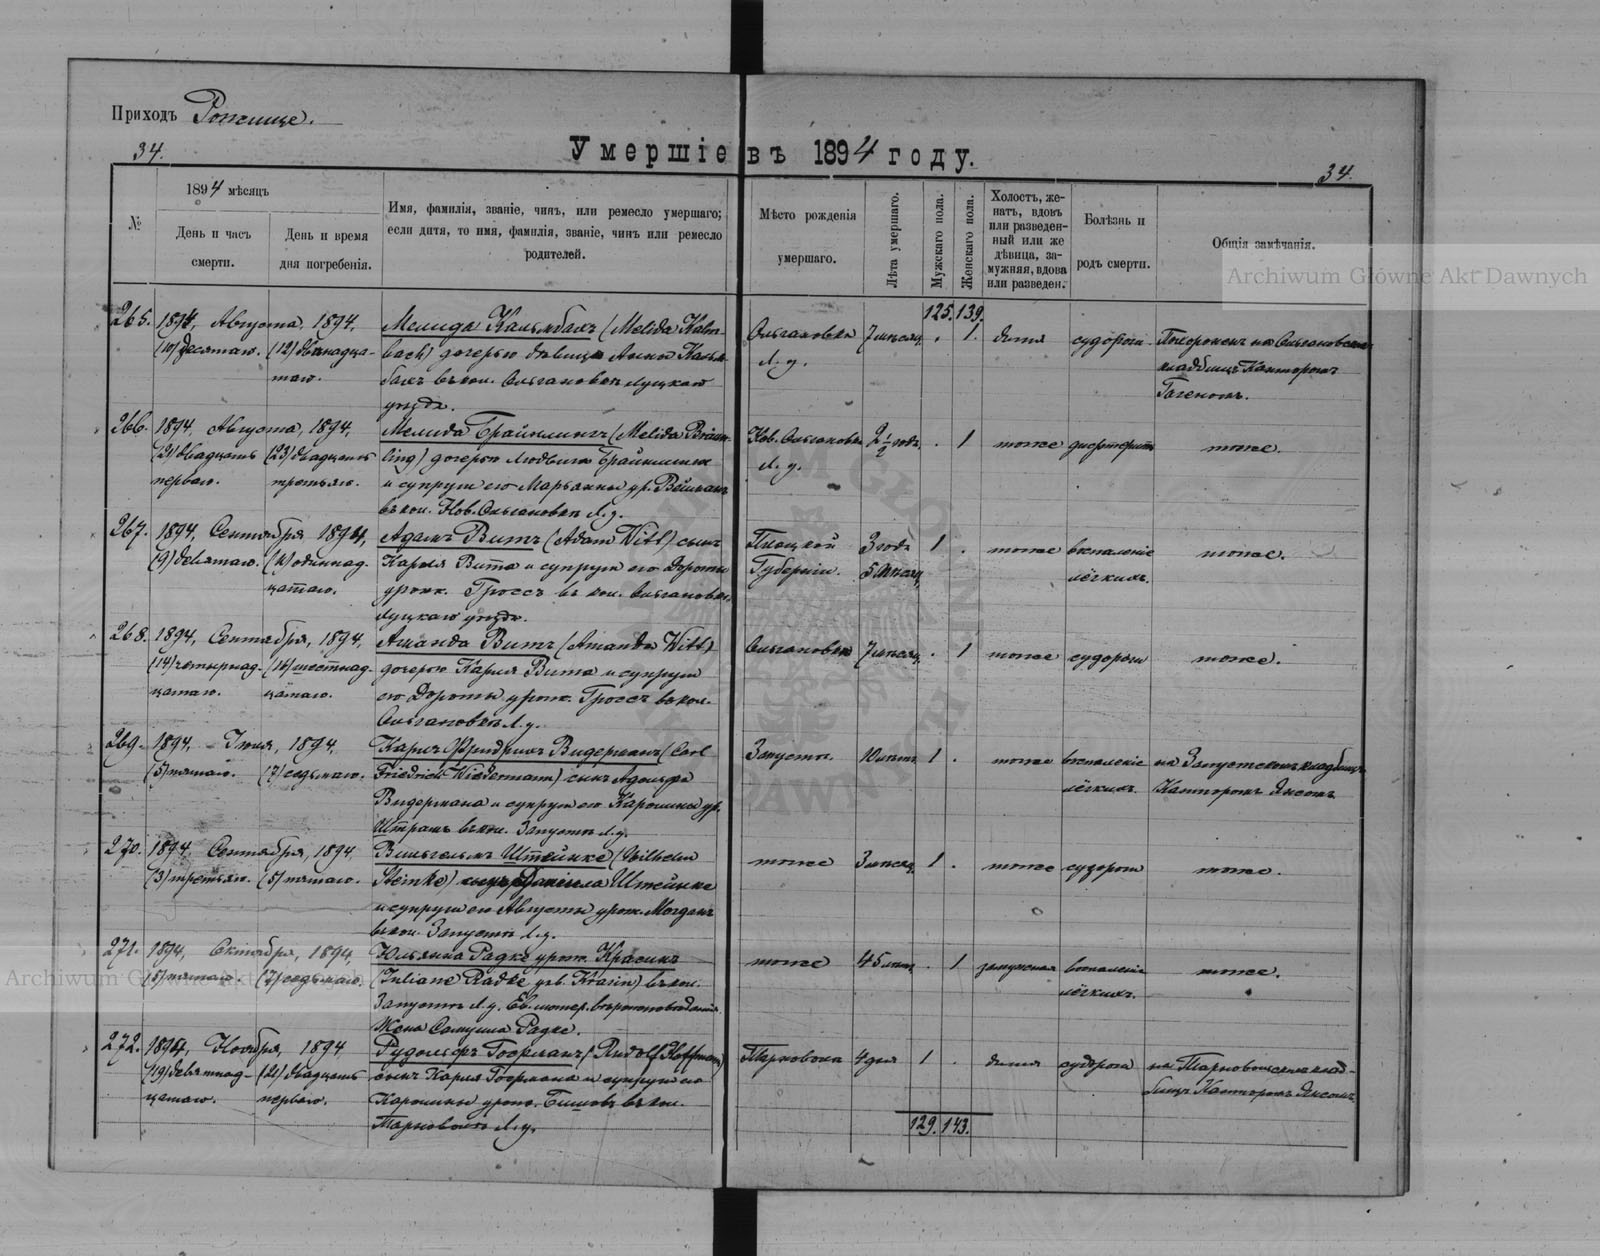 Приходъ Рожище.
34.
Умершіе въ 1894 году.
34.
№
1894 мѣсяцъ
День и часъ смерти.
День и время дня погребенія.
Имя, фамилія, званіе, чинъ, или ремесло умершаго;
если дитя, то имя, фамилія, званіе, чинъ или ремесло
родителей.
Мѣсто рожденія
умершаго.
Лѣта умершаго.
Мужскаго пола.
Женскаго пола.
Холостъ, же-
натъ, вдовъ
или разведен-
ный или же
дѣвица, за-
мужняя, вдова
или разведен.
Болѣзнь и
родъ смерти.
Общія замѣчанія.
Archiwum Główne Akt Dawnych
125. 139.
265. 1894, Августа, 1894, Мелида Кальмбахъ (Melida Kalm- Ольгановка 7 мѣсяц. . 1. дитя судороги. Похороненъ на Ольгановскомъ
(10) десятаго. (12) двѣнадца- bach) дочерью дѣвицы Анны Кальм- Л. у. кладбищѣ Канторомъ
таго. бахъ въ кол. Ольгановкѣ Луцкаго Гагеномъ.
уѣзда.
266. 1894, Августа, 1894, Мелида Брайтлингъ (Melida Bräun- Нов. Ольгановка 2 1/2 года . 1 тоже дифтеритъ тоже.
(21) двадцать (23) двадцать ling) дочерью Людвига Л. у.
перваго. третьяго. и супруги его Марьянны ур.
въ кол. Нов. Ольгановкѣ Л. у.
267. 1894, Сентября 1894, Адамъ Витъ (Adam Witt) сынъ Плоцкой 3 года 1 . тоже воспаленіе тоже.
(9) девятаго. (11) одиннад- Карла Вита и супруги его Дороты Губерніи. 5 мѣсяц. лёгкихъ.
цатаго. урожд. Гроссъ въ кол. Ольгановкѣ
Луцкаго уѣзда.
268. 1894, Сентября, 1894, Аманда Витъ (Amanda Witt) Ольгановка 7 мѣсяц. . 1 тоже судороги тоже.
(14) четырнад- (16) шестнад- дочерью Карла Вита и супруги
цатаго. цатаго. его Дороты урож. Гроссъ въ кол.
Ольгановкѣ Л. у.
269. 1894, Іюля, 1894, Карлъ Фридрихъ Видерманъ (Carl Запустъ. 10 лѣтъ 1 . тоже воспаленіе на Запустскомъ кладбищѣ
(5) пятаго. (7) седьмаго. Friedrich Wiedermann) сынъ Адольфа лёгкихъ. Канторомъ
Видермана и супруги его Каролины ур.
въ кол. Запустъ Л. у.
270. 1894 Сентября, 1894 Вильгельмъ Штейнке (Wilhelm тоже 3 мѣсяц. 1 . тоже судороги тоже.
(3) третьяго. (5) пятаго. Steinke) сынъ Даніила Штейнке
и супруги его Августы урож.
въ кол. Запустъ Л. у.
271. 1894, Октября, 1894, Юльянна Радке урож. Красинъ тоже 45 лѣтъ . 1 замужняя воспаленіе тоже.
(5) пятаго. (7) седьмаго. (Juliane Radke geb. Krasin) въ кол. лёгкихъ.
Запустъ Л. у. Ев. лютер. вѣроисповѣданія.
Жена Самуила Радке.
272. 1894, Ноября, 1894 Рудольфъ Гофманъ (Rudolf Hoffmann) Тарновола 4 дня 1 . дитя судороги на Тарновольскомъ клад-
(19) девятнад- (21) двадцать сынъ Карла Гофмана и супруги его бищѣ Канторомъ
цатаго. перваго. Каролины урож. въ кол.
Тарноволѣ Л. у.
129. 143.
Archiwum Główne Akt Dawnych